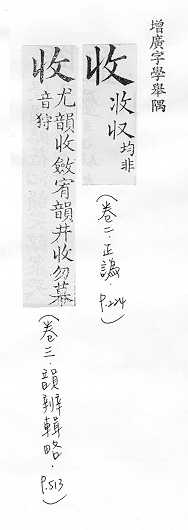 增廣字學舉隅
收 㳊収均非
(卷二·正譌·P.224)
收 尤韻收斂宥韻井收勿幕
音狩
(卷三·韻辨輯略·P.513)